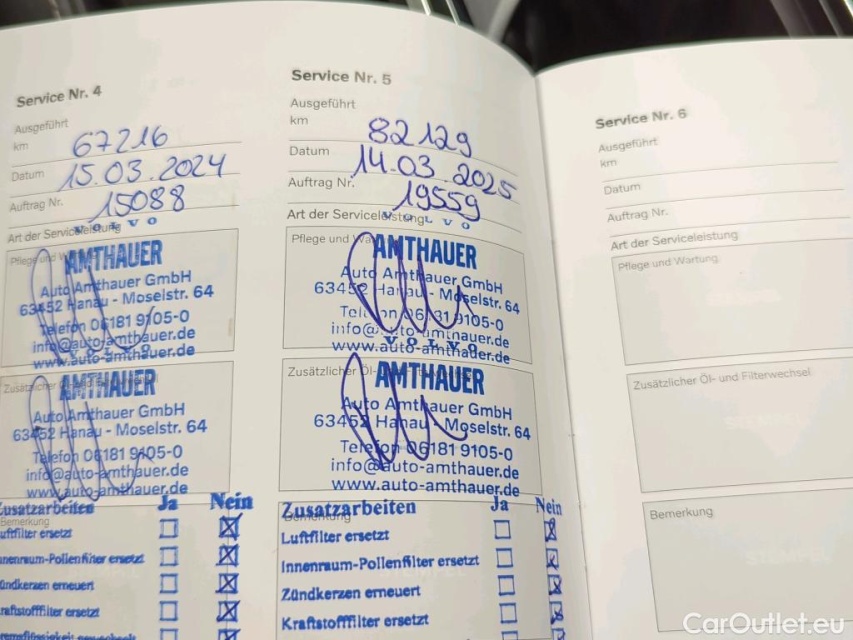 Service Nr. 4
Ausgeführt
km 67216
Datum 15.03.2024
Auftrag Nr. 15088
Art der Serviceleistung
VOLVO
Pflege und
AMTHAUER
Auto Amthauer GmbH
63452 Hanau - Moselstr. 64
Telefon 06181 9105-0
info@auto-amthauer.de
www.auto-amthauer.de
VOLVO
Zusätzlicher Öl-
AMTHAUER
Auto Amthauer GmbH
63452 Hanau - Moselstr. 64
Telefon 06181 9105-0
info@auto-amthauer.de
www.auto-amthauer.de
Zusatzarbeiten Ja Nein
Bemerkung
uftfilter ersetzt
nnenraum-Pollenfilter ersetzt
ündkerzen erneuert
raftstofffilter ersetzt
Service Nr. 5
Ausgeführt
km 82129
Datum 14.03.2025
Auftrag Nr. 19559
Art der Serviceleistung
VOLVO
Pflege und
AMTHAUER
Auto Amthauer GmbH
63452 Hanau - Moselstr. 64
Telefon 06181 9105-0
info@auto-amthauer.de
www.auto-amthauer.de
VOLVO
Zusätzlicher Öl-
AMTHAUER
Auto Amthauer GmbH
63452 Hanau - Moselstr. 64
Telefon 06181 9105-0
info@auto-amthauer.de
www.auto-amthauer.de
Zusatzarbeiten Ja Nein
Bemerkung
Luftfilter ersetzt
Innenraum-Pollenfilter ersetzt
Zündkerzen erneuert
Kraftstofffilter ersetzt
Service Nr. 6
Ausgeführt
km
Datum
Auftrag Nr.
Art der Serviceleistung
Pflege und Wartung
Zusätzlicher Öl- und Filterwechsel
Bemerkung
CarOutlet.eu